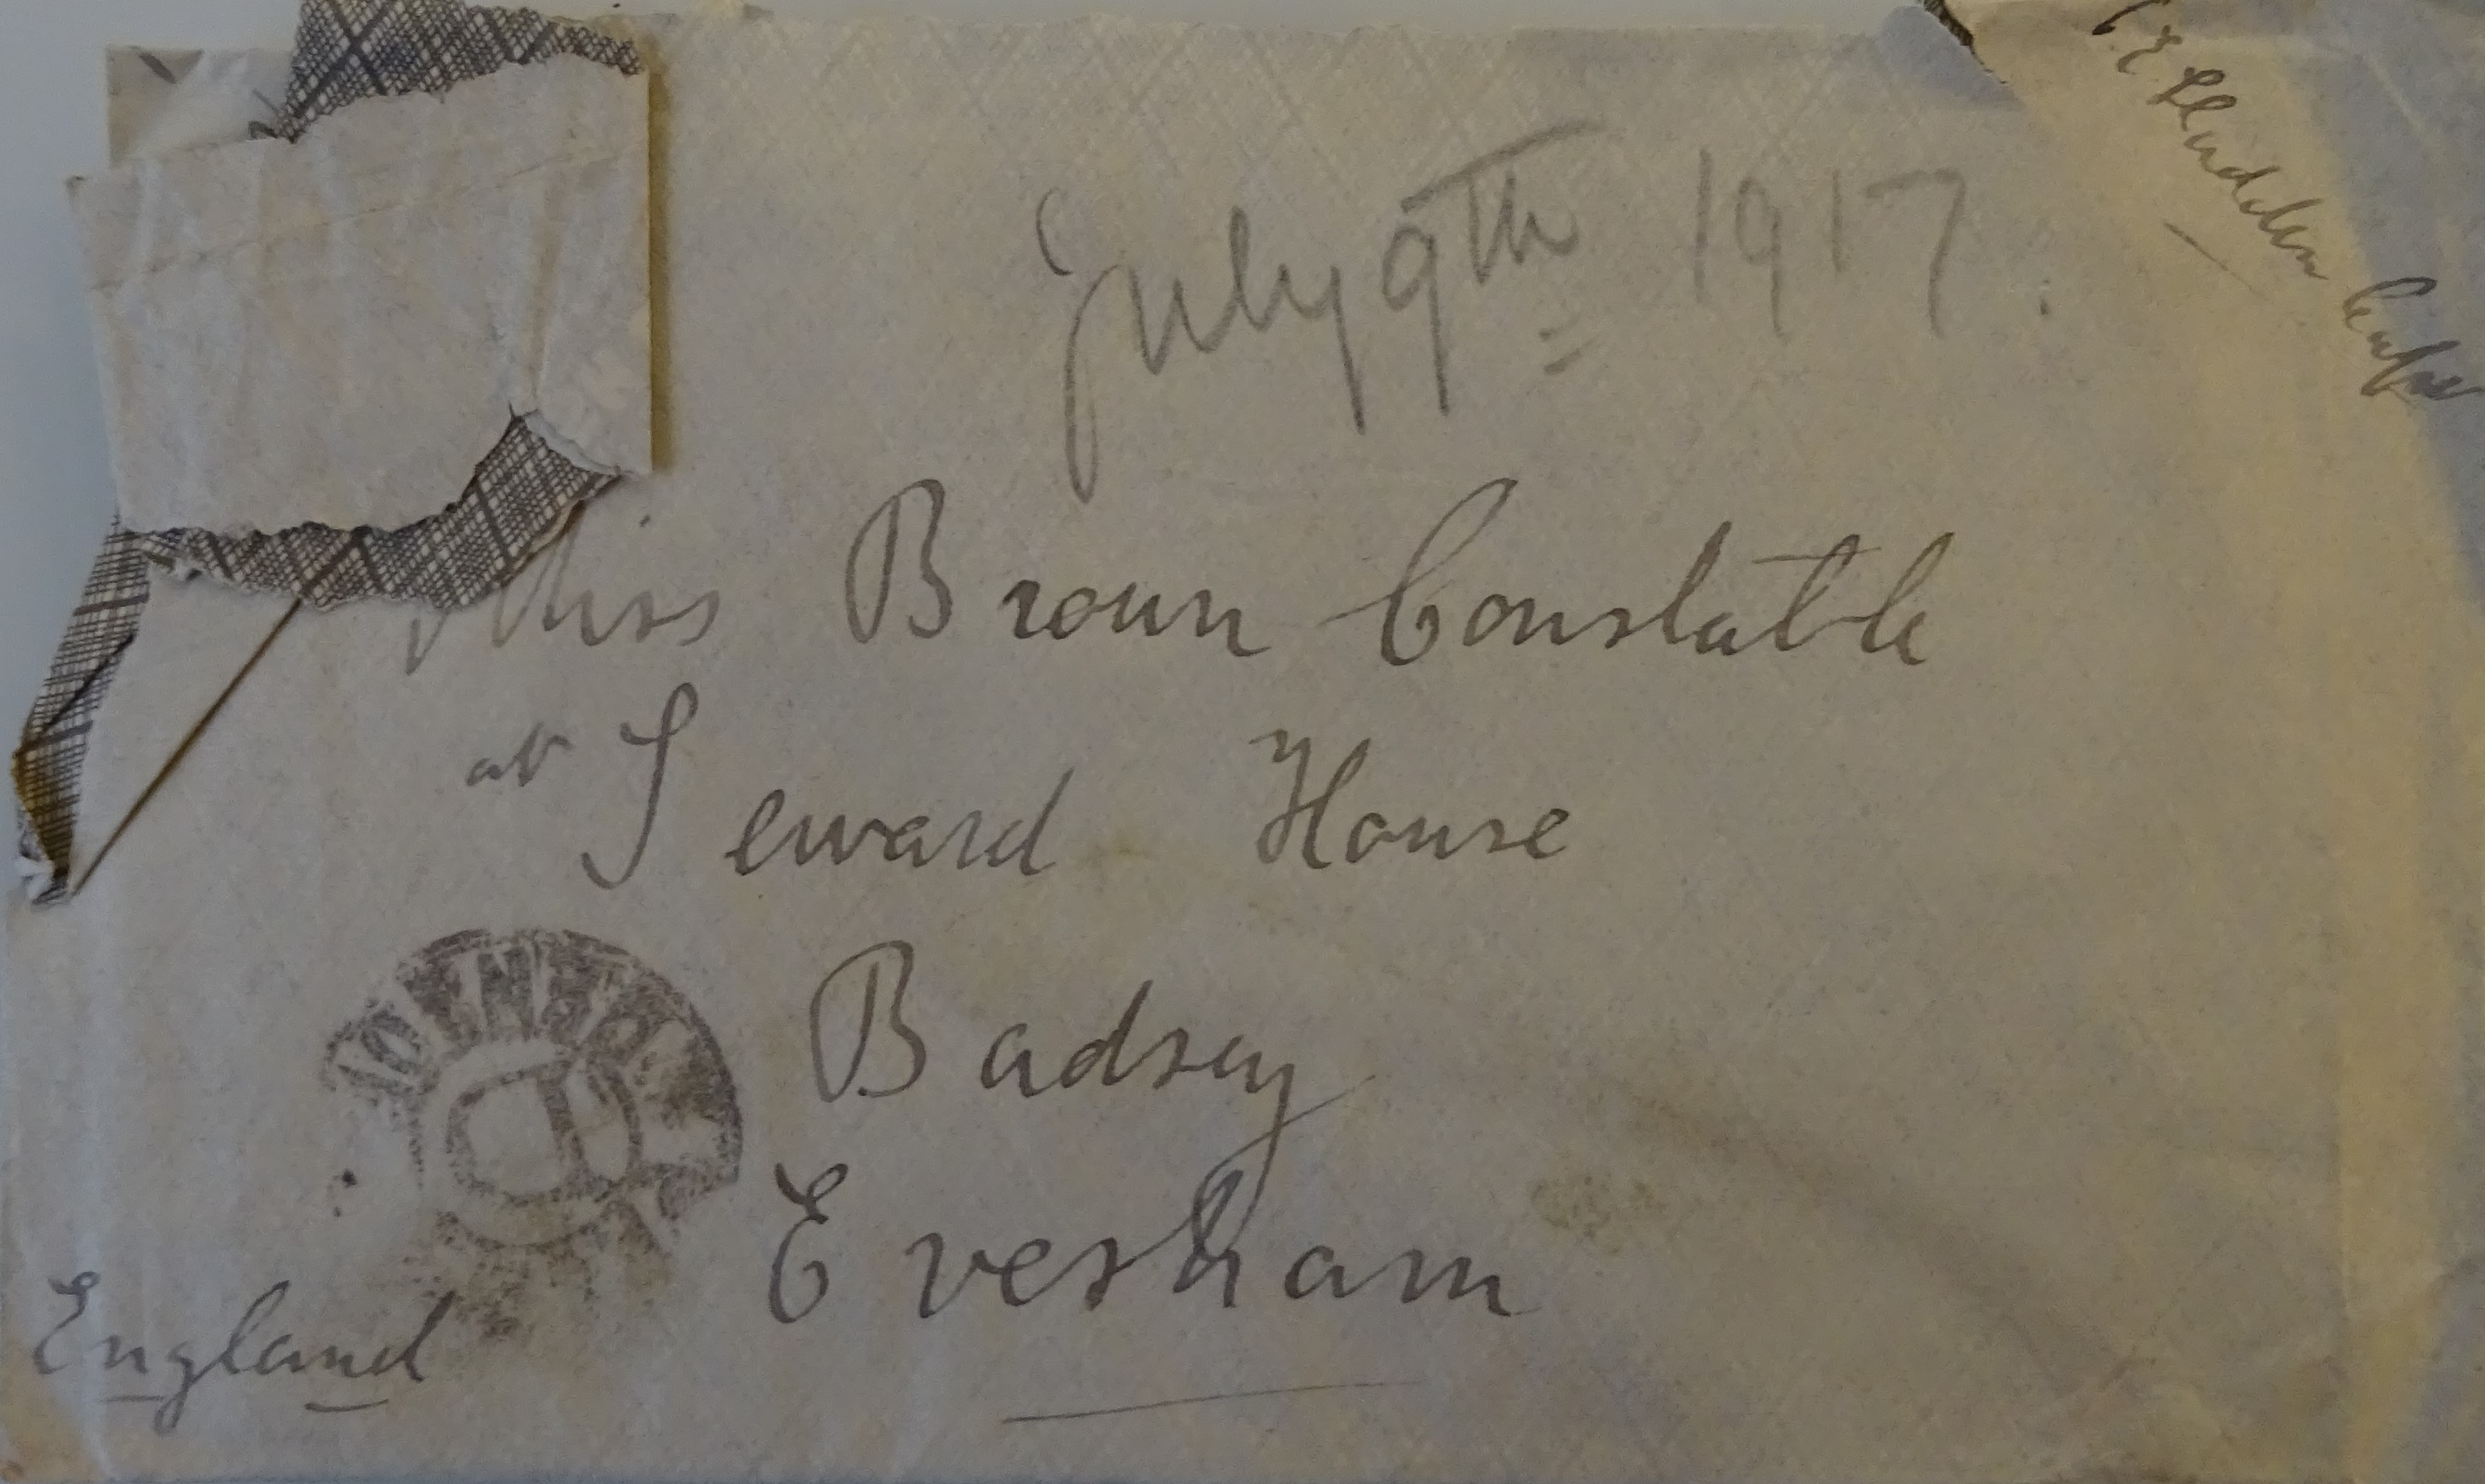 July 9th 1917.
C.E. Sludden Capt
Miss Brown Constable
at Seward House
Badsey
Evesham
England